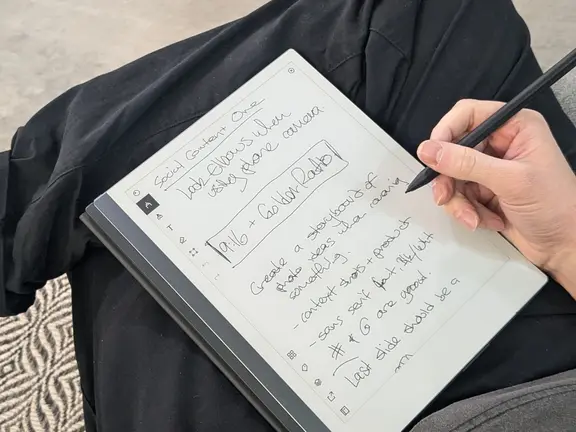 Social Content One
Lock elbows when
using phone camera.
9:16 + Golden Ratio
Create a storyboard of
photo ideas when covering
something
- content shots + product
- sans serif font, 
# + @ are good.
Last slide should be a